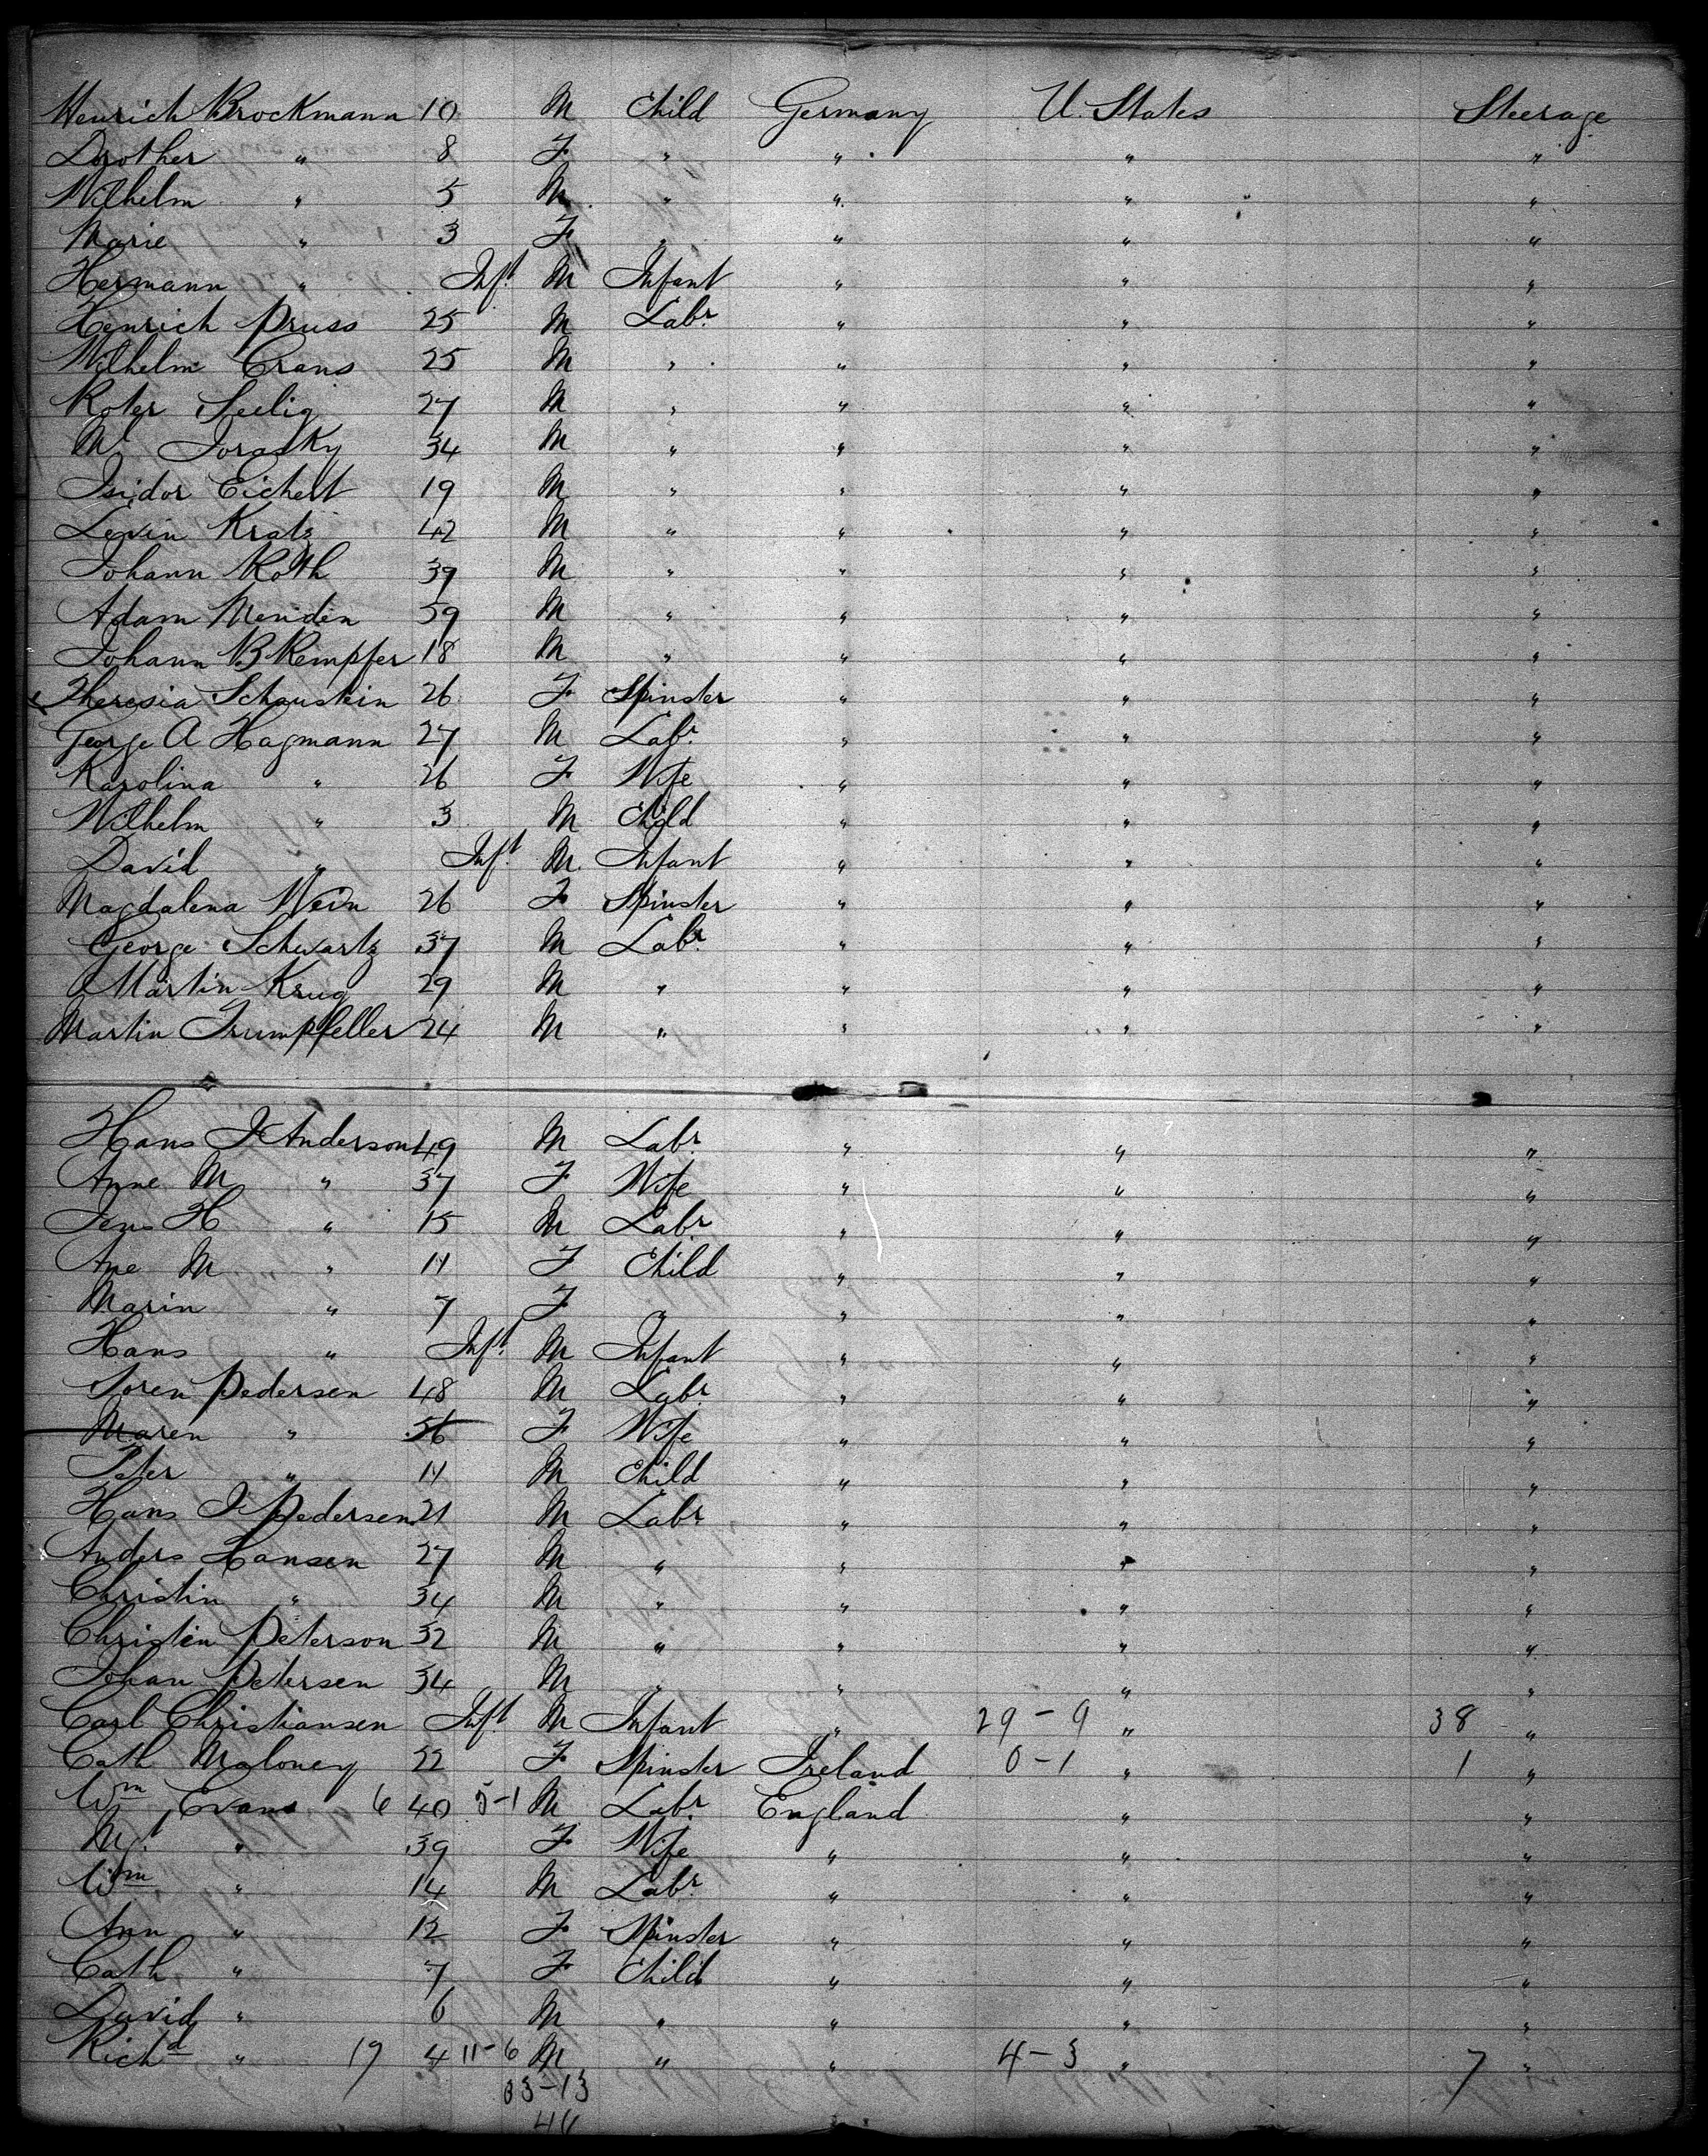 Henrich Brockmann 10 M Child Germany U. States Steerage
Dorother " 8 F " " " "
Wilhelm " 5 M " " " "
Marie " 3 F " " " "
Hermann " Inft M Infant " " "
Henrich Pruss 25 M Labr " " "
Wilhelm Crans 25 M " " " "
Roter Seelig 27 M " " " "
M Jorasky 34 M " " " "
Isidor Eichelt 19 M " " " "
Levin Kratz 42 M " " " "
Johann Roth 39 M " " " "
Adam Meriden 59 M " " " "
Johann B Kempfer 18 M " " " "
Theresia Schaustein 26 F Spinster " " "
George A Hagmann 27 M Labr " " "
Karolina " 26 F Wife " " "
Wilhelm " 3 M Child " " "
David " Inft M Infant " " "
Magdalena Wein 26 F Spinster " " "
George Schwartz 37 M Labr " " "
Martin Krug 29 M " " " "
Martin Trumpfeller 24 M " " " "
Hans J Anderson 49 M Labr " " "
Anne M " 37 F Wife " " "
Jens H " 15 M Labr " " "
Ane M " 11 F Child " " "
Marin " 7 F " " " "
Hans " Inft M Infant " " "
Soren Pedersen 48 M Labr " " "
Maren " 56 F Wife " " "
Peter " 11 M Child " " "
Hans J Pedersen 21 M Labr " " "
Anders Hansen 27 M " " " "
Christin " 34 M " " " "
Christen Peterson 32 M " " " "
Johan Petersen 34 M " " " "
Carl Christiansen Inft M Infant " 29-9 " 38 "
Cath Maloney 22 F Spinster Ireland 0-1 " 1 "
Wm Evans 6 40 5-1 M Labr England " "
Mgt " 39 F Wife " " "
Wm " 14 M Labr " " "
Ann " 12 F Spinster " " "
Cath " 7 F Child " " "
David " 6 M " " " "
Richd " 17 4 11-6 M " " 4-3 " 7 "
33-13
46